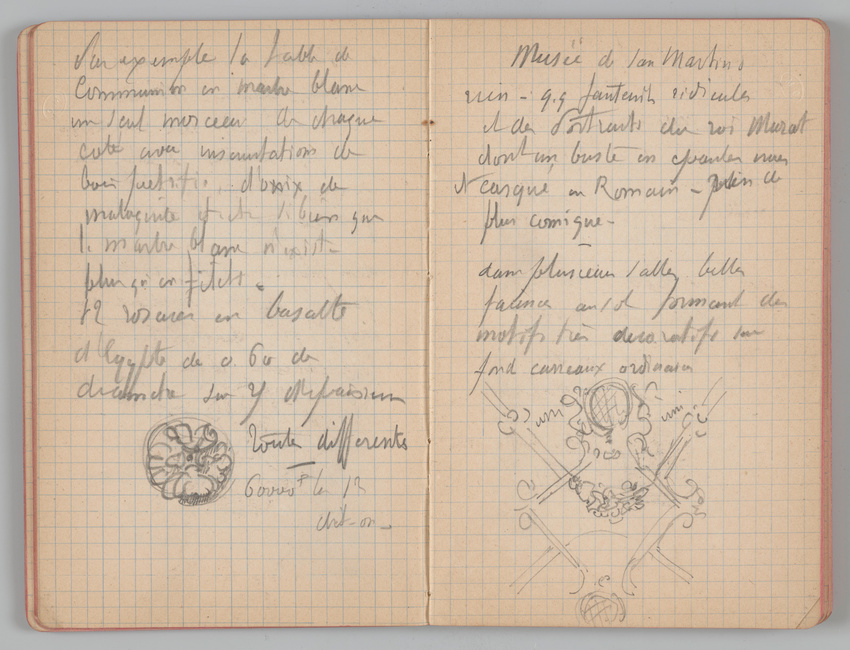 Par exemple la table de
Communion en marbre blanc
un seul morceau de chaque
coté avec incrustations de
bois petrifié, d'onix de
malaquite
le marbre blanc n'existe
plus qu'en filets.
12 rosaces en basalte
d'Egypte de 0.60 de
diamètre sur d'épaisseur
toute differentes
60000 F les 12
dit-on_
Musée de San Martino
rien - q.q fauteuils ridicules
et des Portraits du roi Murat
dont un buste en epaules nues
et casqué en Romain - rien de
plus comique -
dans plusieurs salles belles
faiences au sol formant des
motifs très decoratifs sur
fond carreaux ordinaires
uni
uni